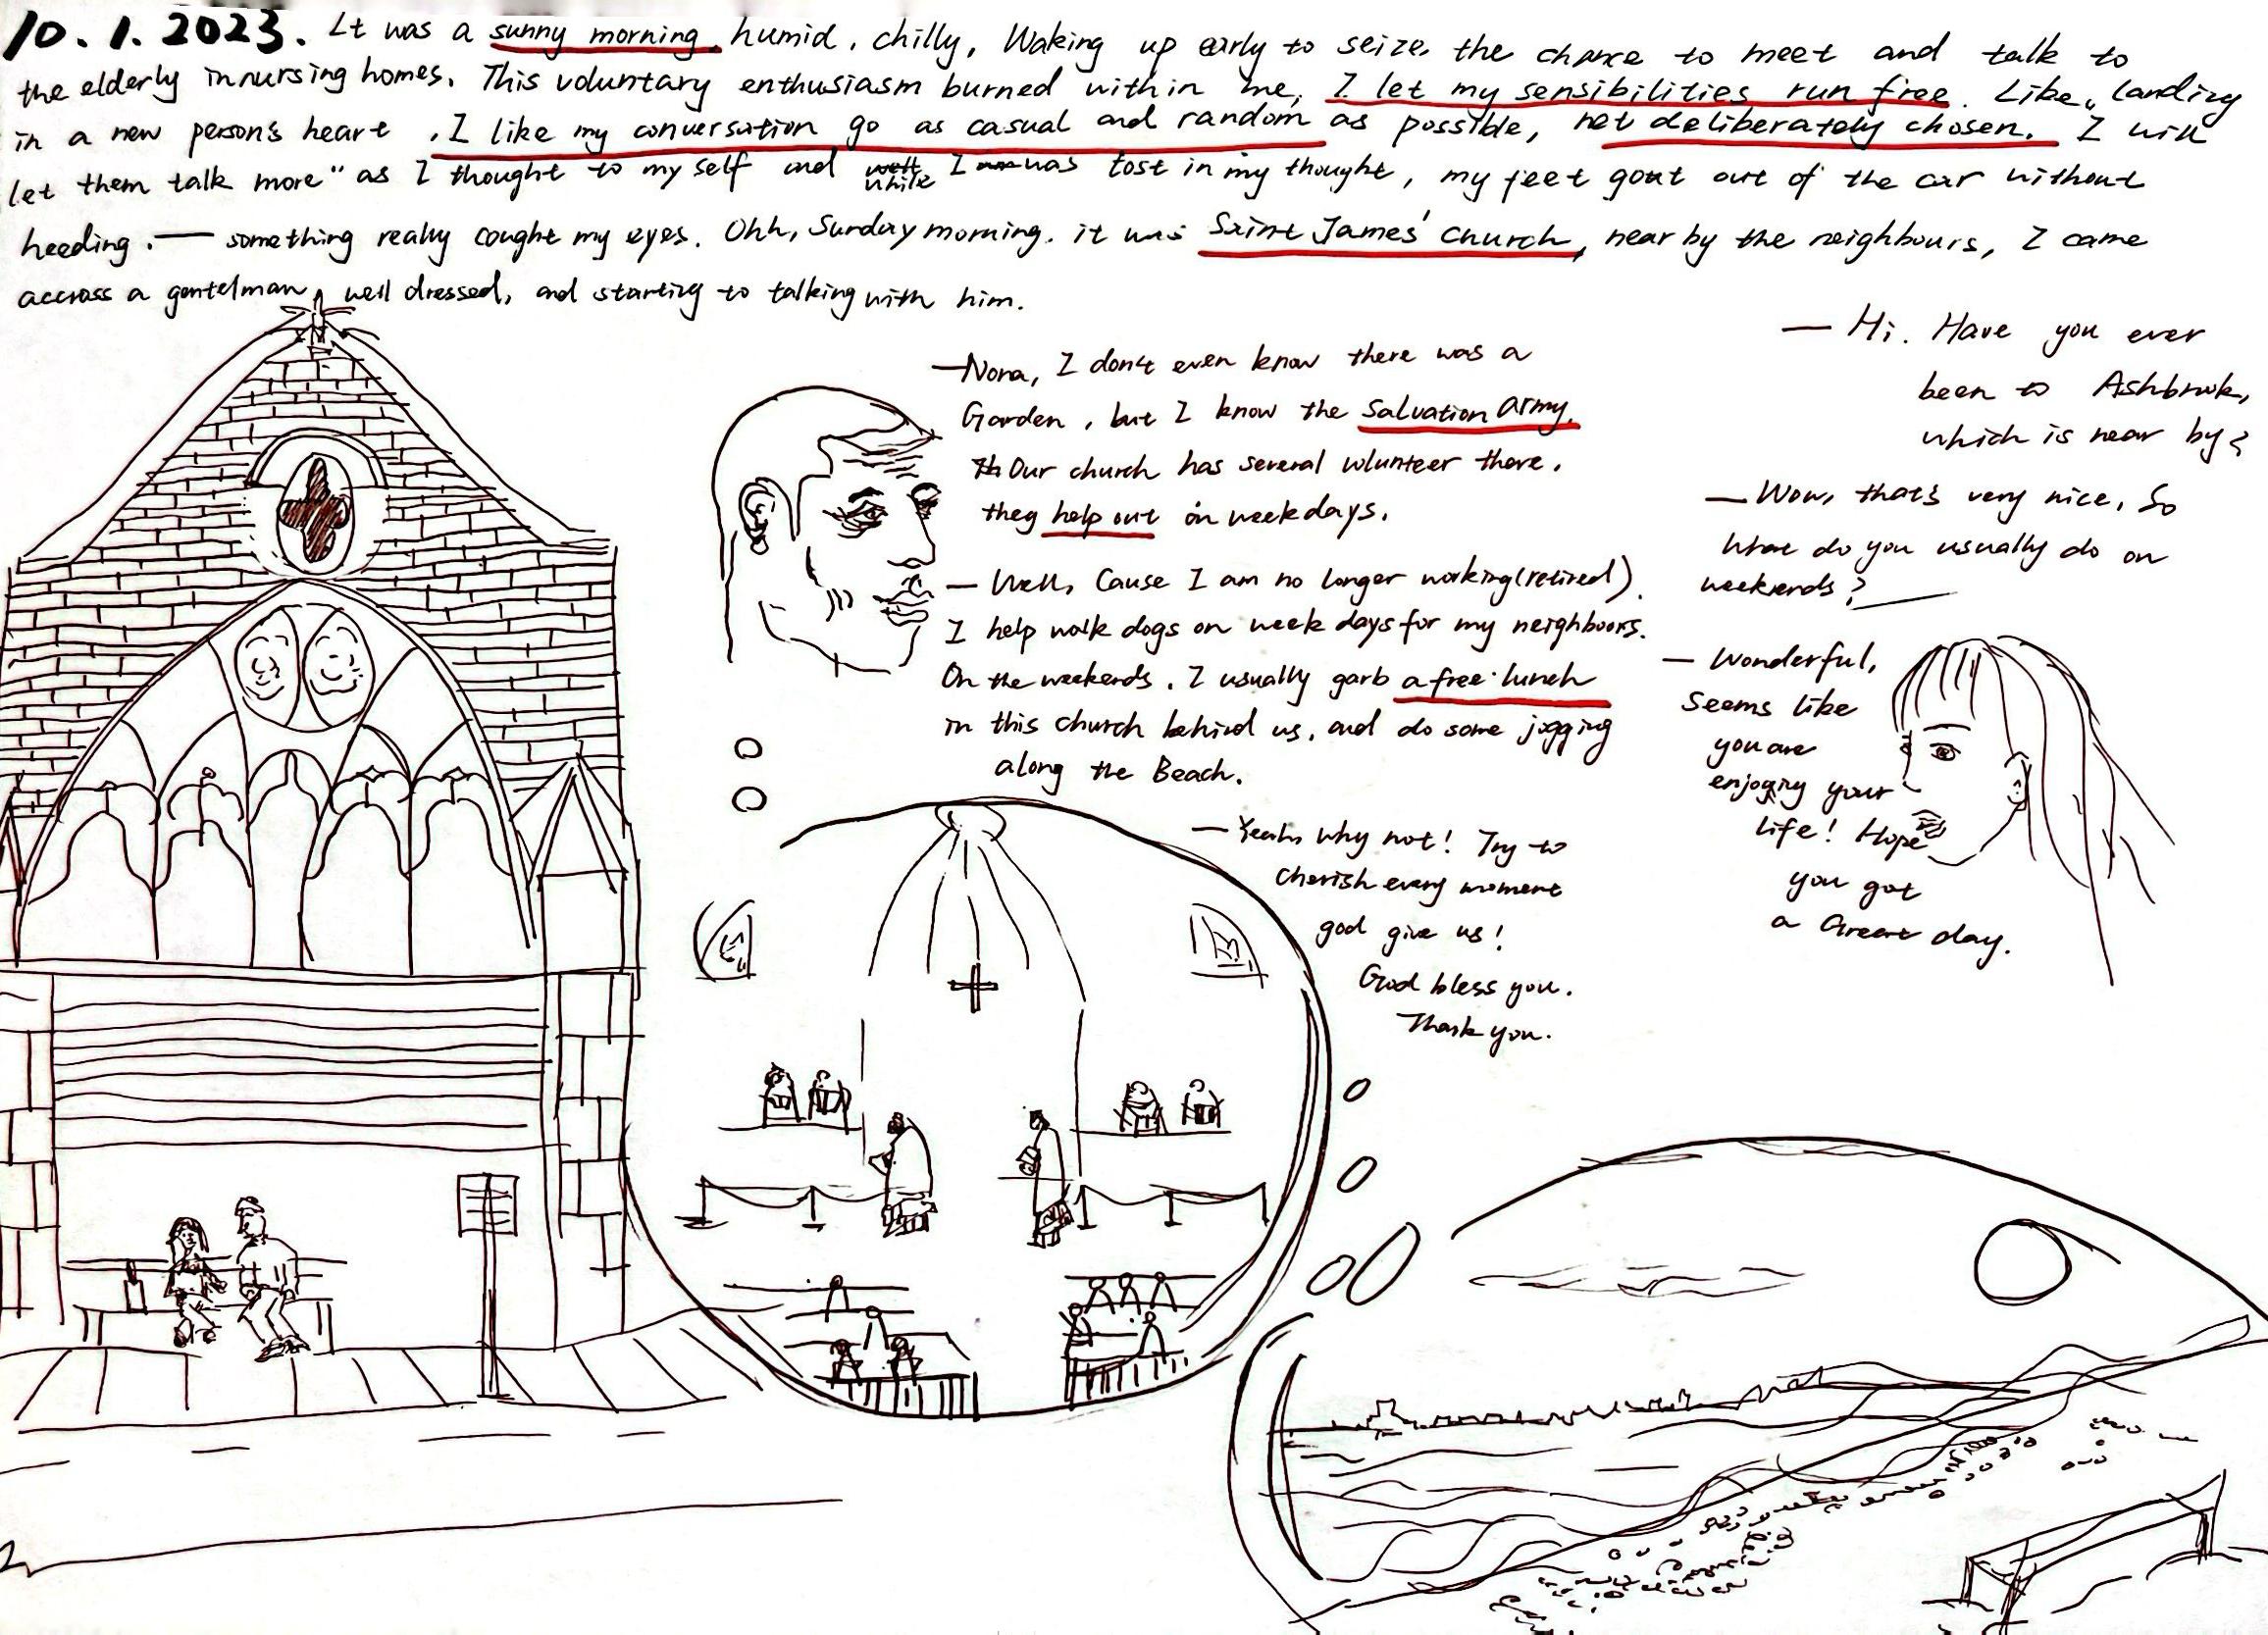 10.1.2023. It was a sunny morning, humid, chilly, Waking up early to seize the chance to meet and talk to
the elderly in nursing homes. This voluntary enthusiasm burned within me, I let my sensibilities run free. Like, landing
in a new person's heart, I like my conversation go as casual and random as possible, not deliberately chosen. I will
let them talk more" as I thought to my self and while I was lost in my thought, my feet gout out of the car without
heeding. — something really cought my eyes. Ohh, Sunday morning. it was Saint James' church, near by the neighbours, I came
accross a gentelman, well dressed, and starting to talking with him.
— Hi. Have you ever
been to Ashbrook,
which is near by?
— Nora, I don't even know there was a
Garden, but I know the Salvation Army.
Our church has several volunteer there.
they help out on weekdays.
— Wow, that's very nice. So
What do you usually do on
weekends?
— Well, Cause I am no longer working (retired).
I help walk dogs on week days for my neighbours.
On the weekends. I usually garb a free lunch
in this church behind us, and do some jogging
along the Beach.
— Wonderful,
Seems like
you are
enjoying your
life! Hope
you got
a Great day.
— Yeah, why not! Try to
cherish every moment
god give us!
God bless you.
Thank you.